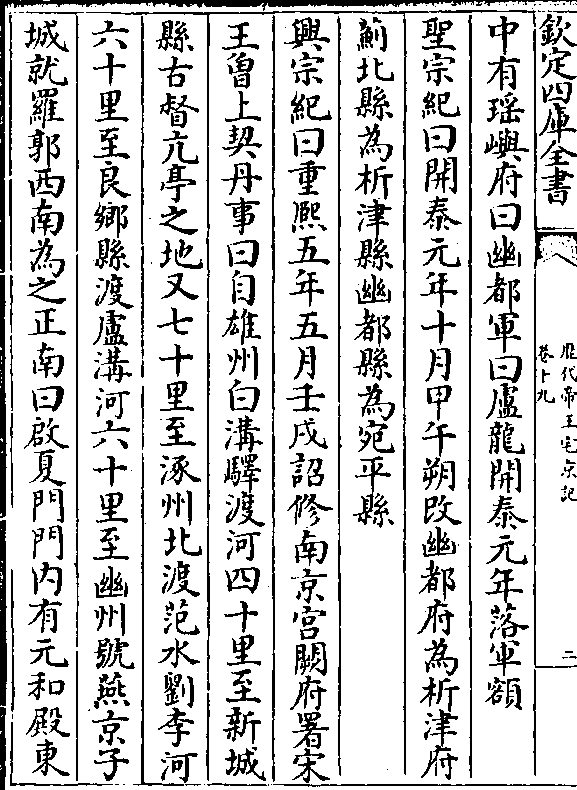 欽定四庫全書
歷代帝王宅京記
卷十九
二
中有瑶嶼府曰幽都軍曰盧龍開泰元年落軍額
聖宗紀曰開泰元年十月甲午朔改幽都府為析津府
薊北縣為析津縣幽都縣為宛平縣
興宗紀曰重熙五年五月壬戌詔修南京宫闕府署宋
王曾上契丹事曰自雄州白溝驛渡河四十里至新城
縣古督亢亭之地又七十里至涿州北渡范水劉李河
六十里至良鄉縣渡盧溝河六十里至幽州號燕京子
城就羅郭西南為之正南曰啟夏門門内有元和殿東